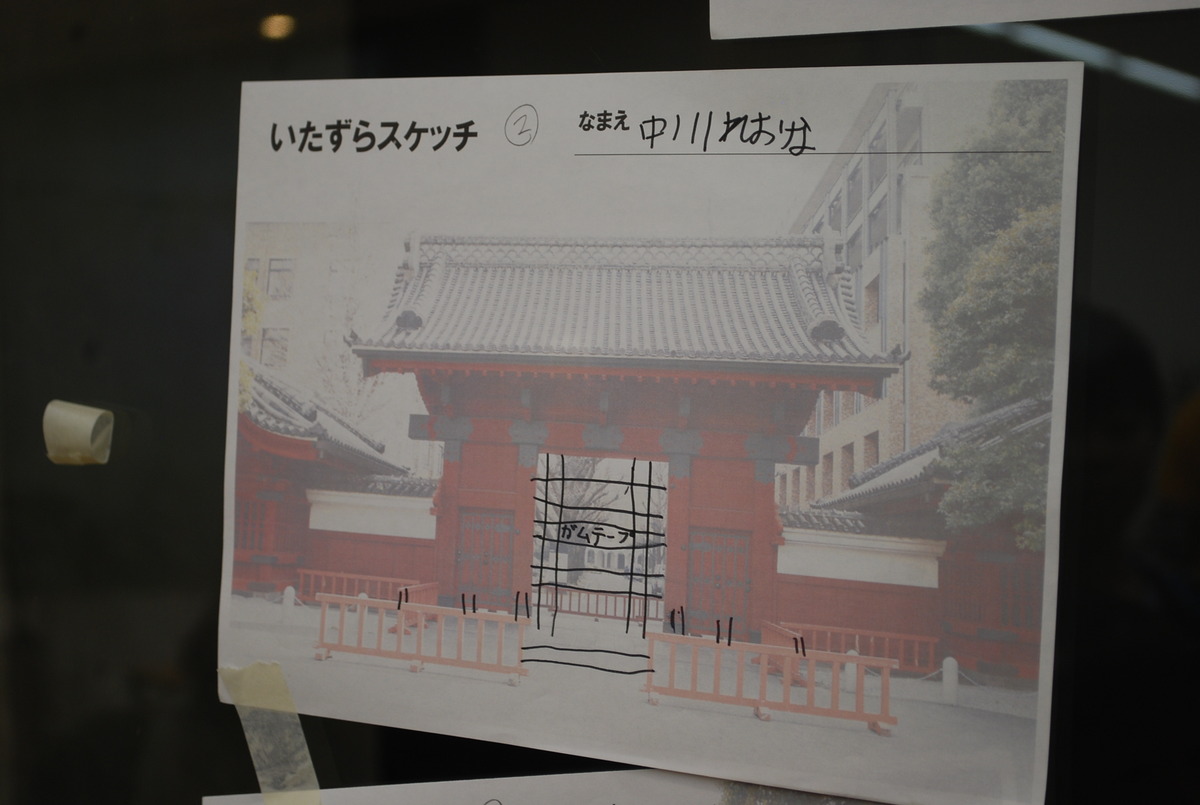 いたずらスケッチ ② なまえ 中川れおな
ガムテープ